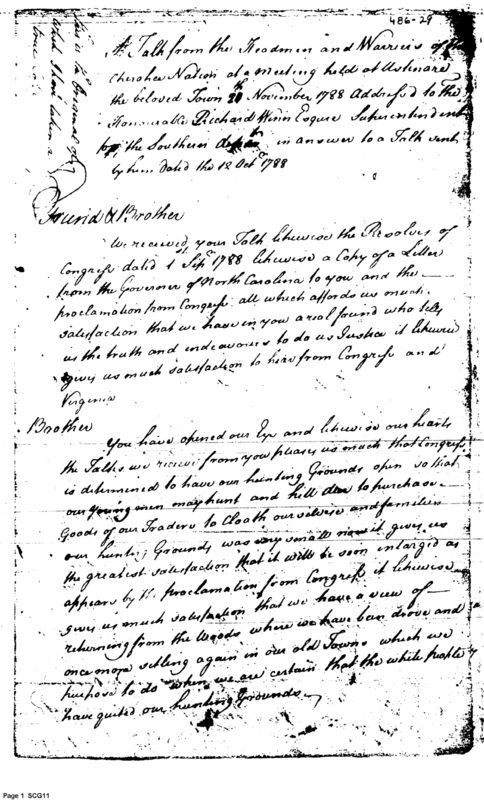 486-29
A Talk from the Headmen and Warriors of the
Cherokee Nation at a Meeting held at Ustinare
the beloved Town 20 November 1788 Addressed to the
Honourable Richard Winn Esquire Superintendent
for the Southern depart in answer to a Talk sent
by him Dated the 12 Octr 1788
Friend & Brother
We received your Talk likewise the Resolves of
Congress dated 1 Sepr 1788 likewise a Copy of a Letter
from the Governor of North Carolina to you and the
proclamation from Congress all which affords us much
satisfaction that we have in you a real friend who tells
us the truth and endeavours to do us Justice it likewise
gives us much satisfaction to here from Congress and
Virginia
Brother
You have opened our Eye and likewise our hearts
the Talks we receive from you pleases us much that Congress
is determined to have our hunting Grounds open so that
our young men may hunt and kill deer to purchase
Goods of our Traders to Cloath ourselves and families
our hunting Grounds was very small now it gives us
the greatest satisfaction that it will be soon enlarged as
appears by the proclamation from Congress it likewise
gives us much satisfaction that we have a view of
returning from the Woods where we have ben drove and
once more settling again in our old Towns which we
purpose to do when we are certain that the white people
have quited our hunting Grounds
Page 1 SCG11